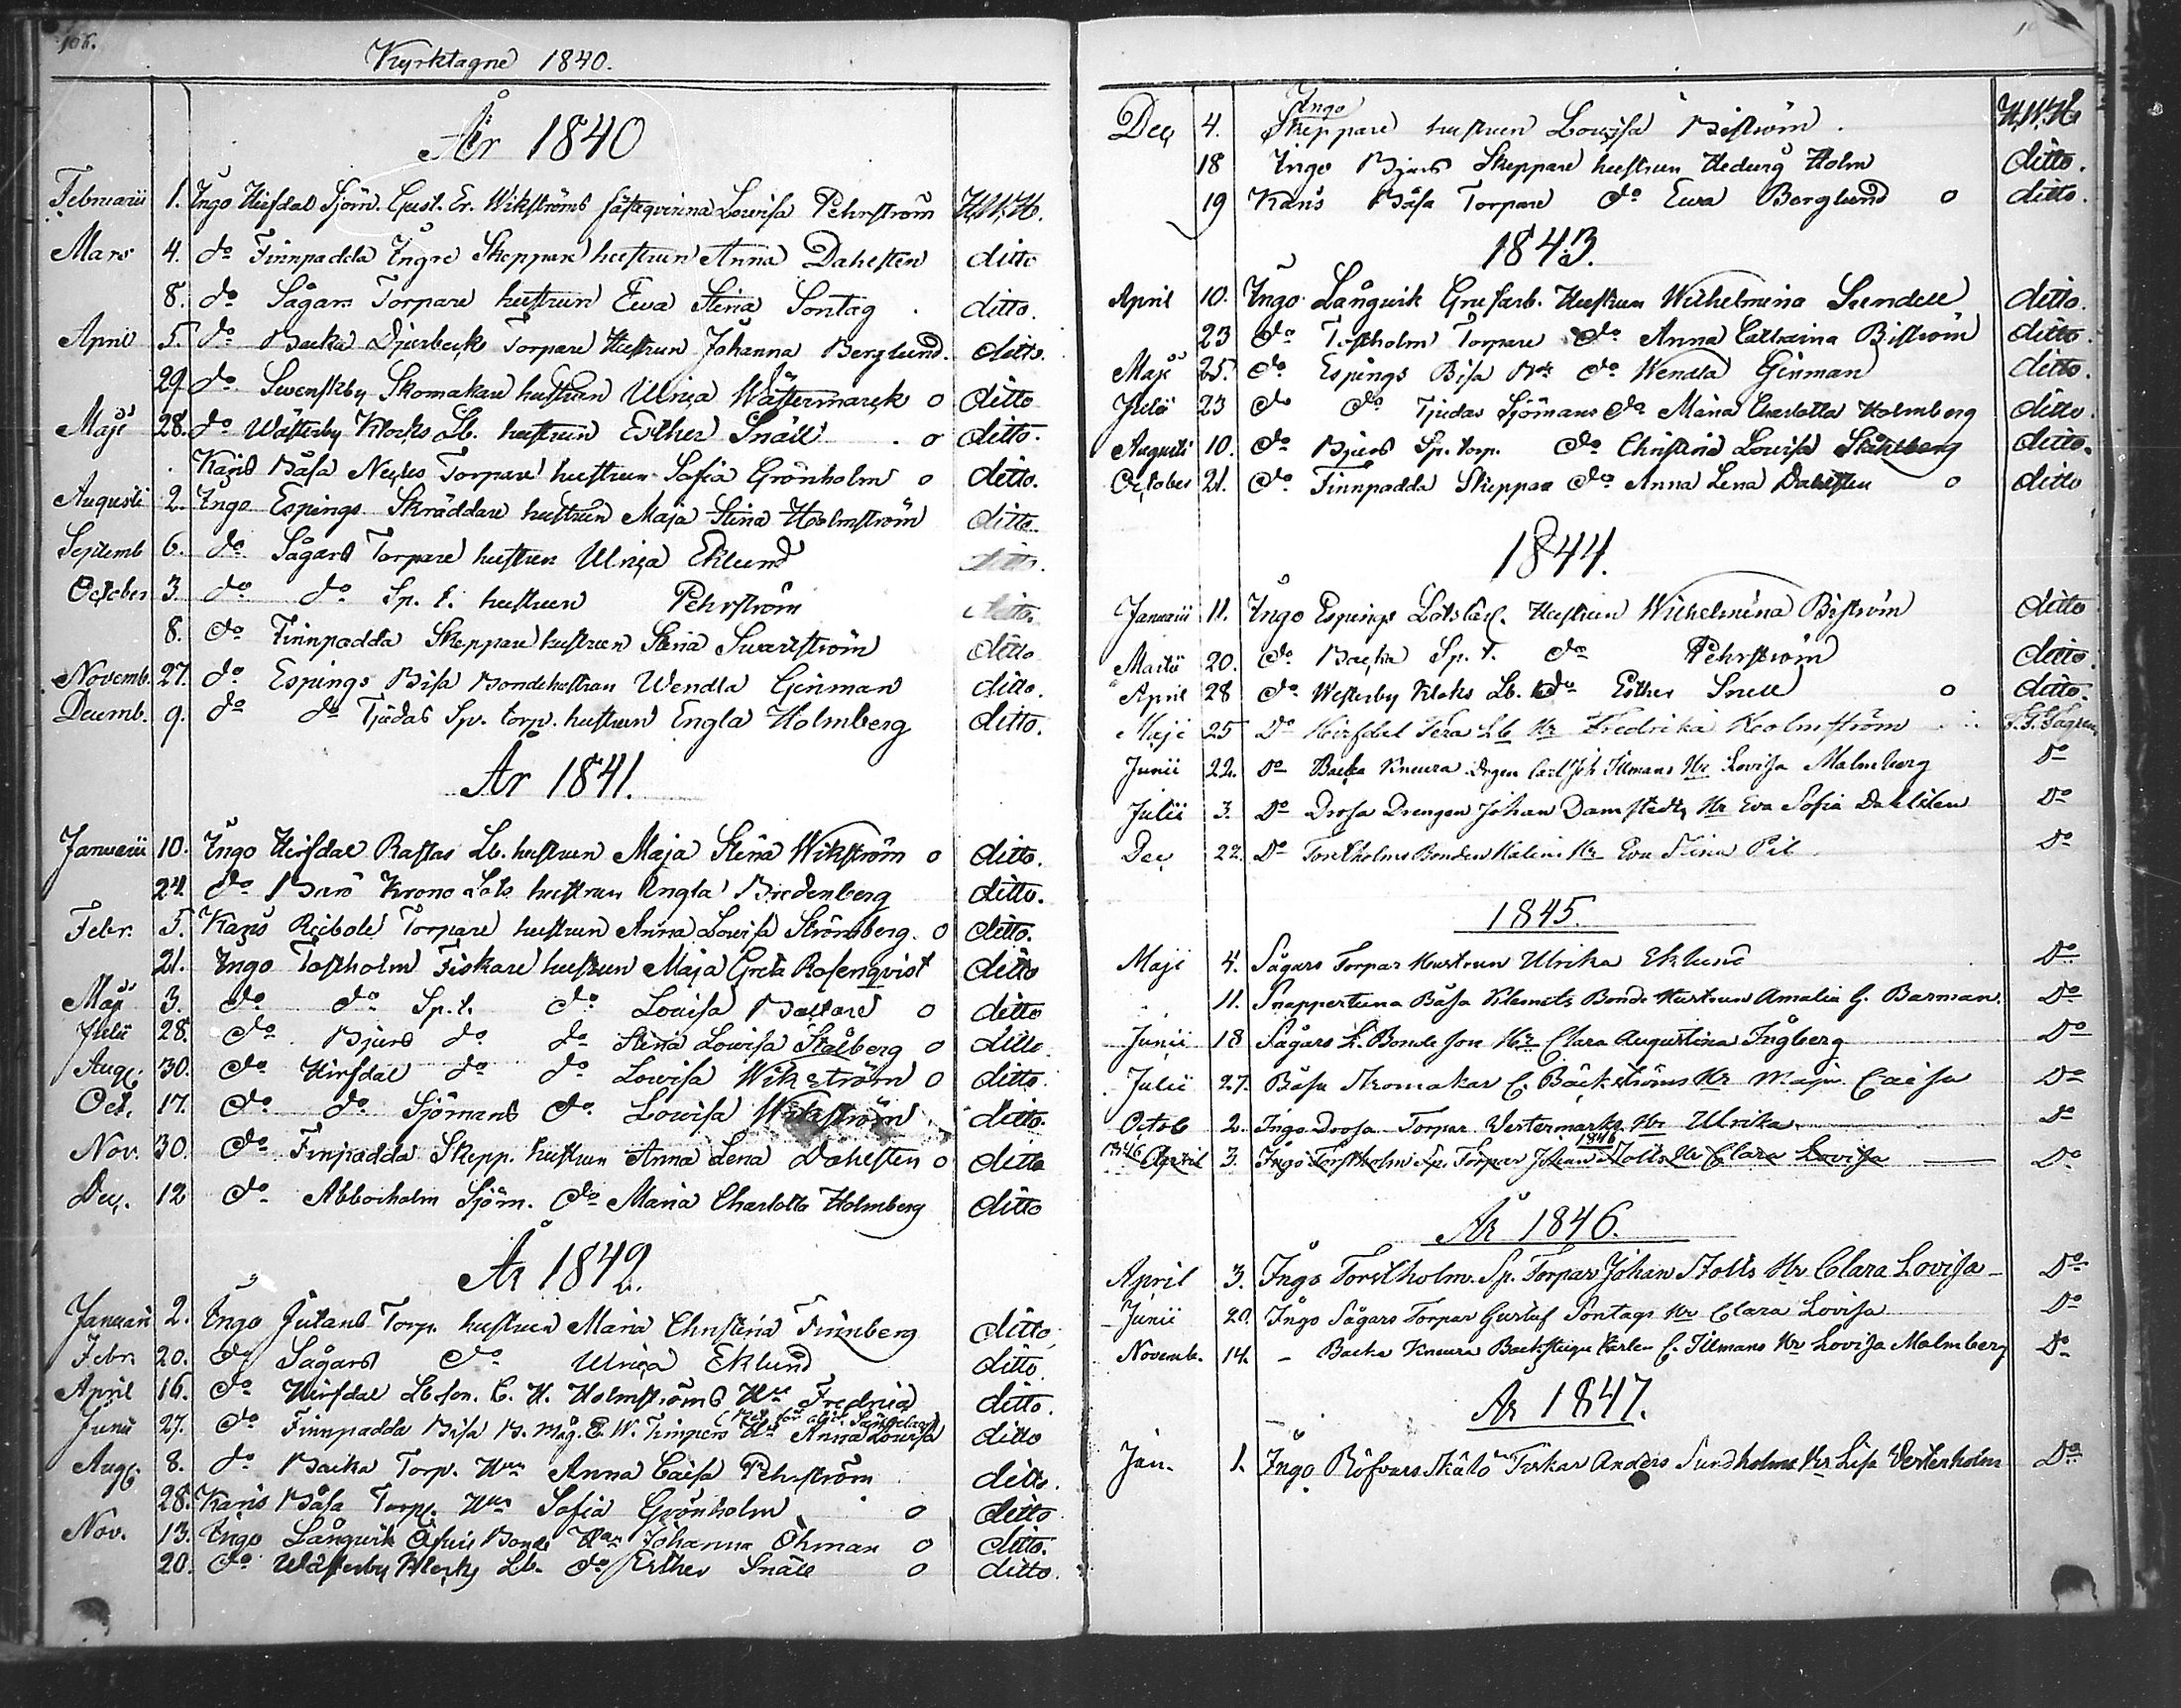 106.
Kyrktagne 1840.
År 1840
Februarii 1. Ingo Hirsdal Sjöm. Gust. Er. Wikströms fästeqvinna Lowisa Pehrström H.W.H.
Mars 4. do Finnpadda Yngre Skeppare hustrun Anna Dahlsten ditto
8. do Sågars Torpare hustrun Ewa Stina Sontag. ditto.
April 5. do Backa Torpare Hustrun Johanna Berglund. ditto.
29. do Swenskby Skomakare hustrun Ulrica Wästermarck o ditto
Maji 28. do Wästerby Klocks Lb. hustrun Esther Snäll . o ditto.
Karis Båsa Torpare hustrun Sofia Grönholm o ditto.
Augusti 2. Ingo Espings Skräddare hustrun Maja Stina Holmström ditto.
Septemb 6. do Sågars Torpare hustrun Ulrica Eklund ditto.
October 3. do do Sp. t. hustrun Pehrström ditto.
8. do Finnpadda Skeppare hustrun Stina Swartström ditto
Novemb. 27. do Espings Bisa Bondehustrun Wendla Ginman ditto.
Decemb. 9. do do Tjudas Sp. torp. hustrun Engla Holmberg ditto.
År 1841.
Januarii 10. Ingo Hirsdal Rastas Lb. hustrun Maja Stina Wikström o ditto.
24. do Barö Krono Lots hustrun Engla Bredenberg ditto.
Febr. 5. Karis Torpare hustrun Anna Lowisa Strömberg. o ditto.
21. Ingo Tostholm Fiskare hustrun Maja Greta Rosenqvist ditto
Maji 3. do do Sp. t. do Lovisa o ditto
Julii 28. do Bjurs do do Stina Lowisa Stålberg o ditto
Aug. 30. do Hirsdal do do Lowisa Wikström o ditto.
Oct. 17. do do Sjömans do Lowisa Wikström ditto.
Nov. 30. do Finpadda Skepp. hustrun Anna Lena Dahlsten o ditto
Dec. 12 do Abborholm Sjöm. do Maria Charlotta Holmberg ditto
År 1842.
Januari 2. Ingo Jutans Torp. hustrun Maria Christina Finnberg ditto
Febr. 20. do Sågars do Ulrica Eklund ditto.
April 16. do Hirsdal Lb. son. C. H. Holmströms Hu Fredrica ditto.
Junii 27. do Finnpadda Bisa B. Måg. E. W. Timpers Hu Anna Lowisa ditto
Aug. 8. do Backa Torp. Hu Anna Caisa Pehrström ditto.
28. Karis Båsa Torp. Hu Sofia Grönholm o ditto
Nov. 13. Ingo Långwik Bonde Hu Johanna Öhman o ditto.
20. do Wästerby Klocks Lb. do Esther Snäll o ditto.
Dec 4. Ingo Skeppare hustrun Lowisa Biström. H.W.H.
18 Ingo Bjurs Skeppare hustrun Hedvig Holm ditto.
19 Karis Båsa Torpare do Ewa Berglund o ditto.
1843.
April 10. Ingo Långwik Hustrun Wilhelmina Sundell ditto.
23 do Tostholm Torpare do Anna Cathrina Biström ditto.
Maji 25. do Espings Bisa do Wendla Ginman ditto.
Julii 23 do do Tjudas Sjömans do Maria Charlotta Holmberg ditto.
Augusti 10. do Bjurs Sp. torp. do Christina Lowisa Ståhlberg ditto.
October 21. do Finnpadda Skeppar do Anna Lena Dahlsten o ditto
1844.
Januarii 11. Ingo Espings Hustrun Wilhelmina Biström ditto
Martii 20. do Backa Sp. t. do Pehrström ditto.
April 28 do Westerby Kloks Lb. do Esther Snell o ditto.
Maji 25 Do Hirsdal Lb Hr Fredrika Holmström
Junii 22. Do Backa Knura drgen Carl Joh Illmans Hr Lovisa Malmberg Do
Julii 3. Do Drosa Drengen Johan Damstedts Hr Eva Sofia Dahlsten Do
Dec 22. Do Torstholms Bonden Malins Hr Eva Stina Pil Do
1845.
Maji 4. Sågars Torpar Hustrun Ulrika Eklund Do
11. Snappertuna Båsa Klemets Bonde Hustrun Amalia G. Barman. Do
Junii 18 Sågars L. Bonde son Hr Clara Augustina Ingberg Do
Julii 27. Båsa Skomakar C. Bäckströms Hr Maja Caisa Do
Octob 2. Ingo Drosa Torpar Westermarks Hr Ulrika Do
1846 April 3. Ingo Torstholm Sp. Torpar Johan Stolts Hr Clara Lovisa Do
1846
År 1846.
April 3. Ingo Torstholm. Sp. Torpar Johan Stolts Hr Clara Lovisa Do
Junii 20. Ingo Sågars Torpar Gustaf Sontags Hr Clara Lovisa Do
Novemb. 14. Backa Knura Backstugu Karlen C. Illmans Hr Lovisa Malmberg Do
År 1847.
Jan. 1. Ingo Fiskar Anders Sundholms Hr Lisa Westerholm Do